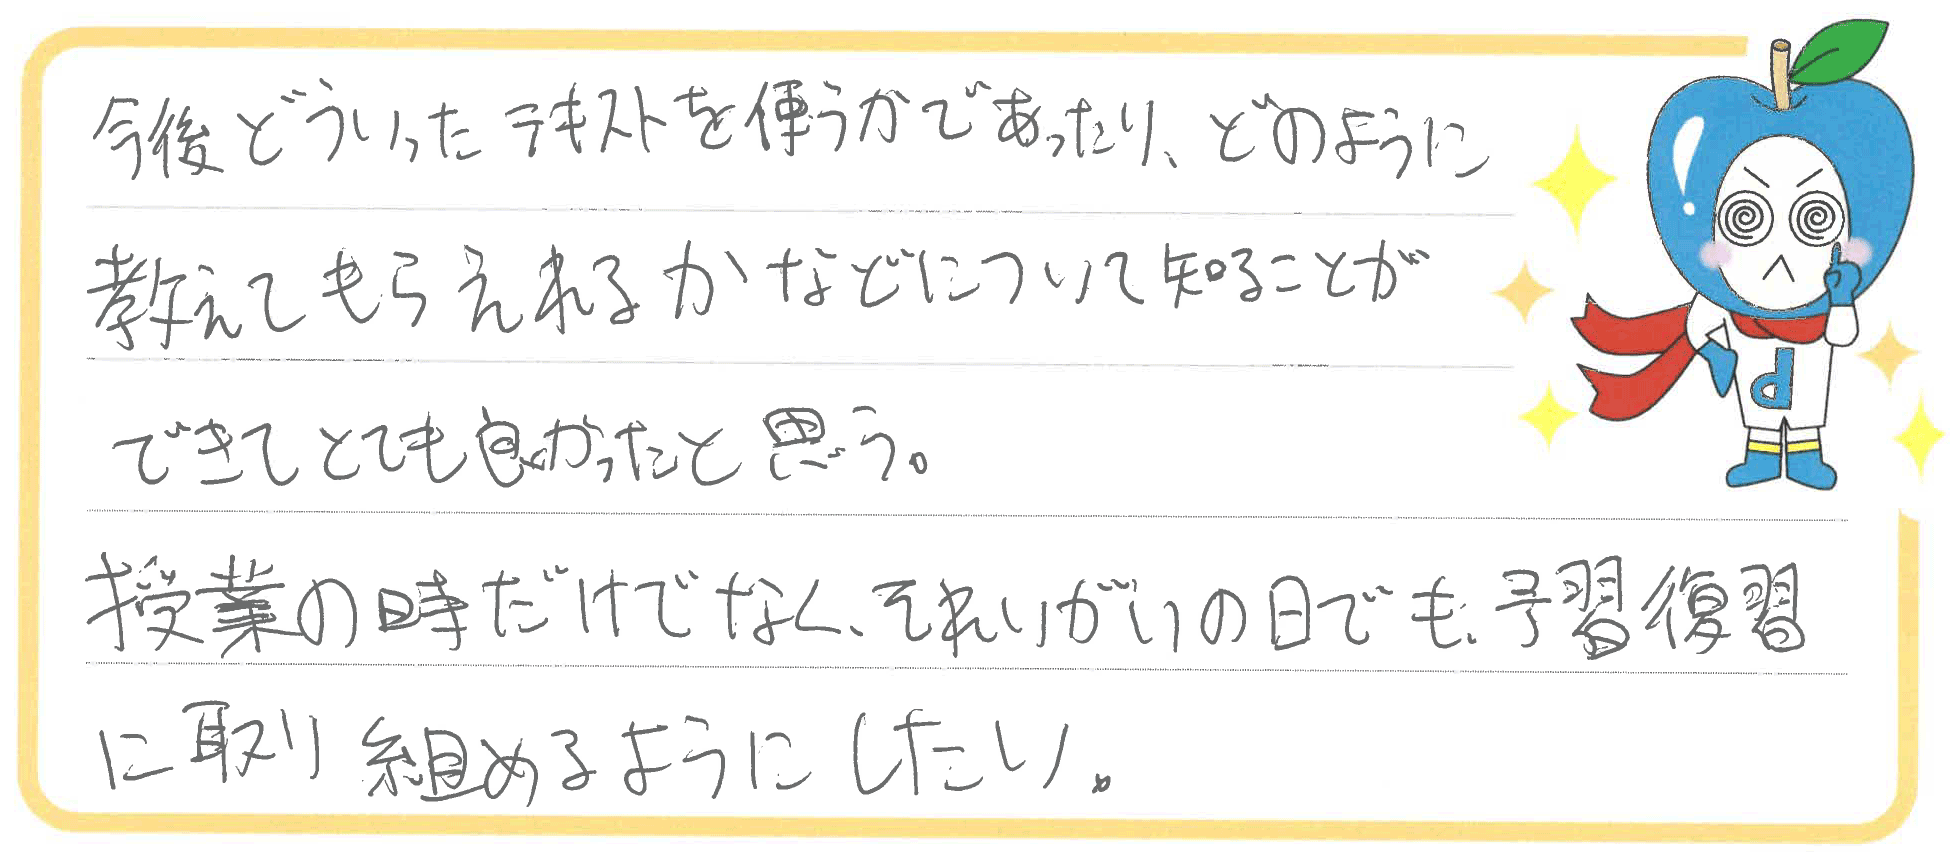 今後どういったテキストを使うかであったり、どのように
教えてもらえれるかなどについて知ることが
できてとても良かったと思う。
授業の時だけでなく、それいがいの日でも、予習復習
に取り組めるようにしたい。
d